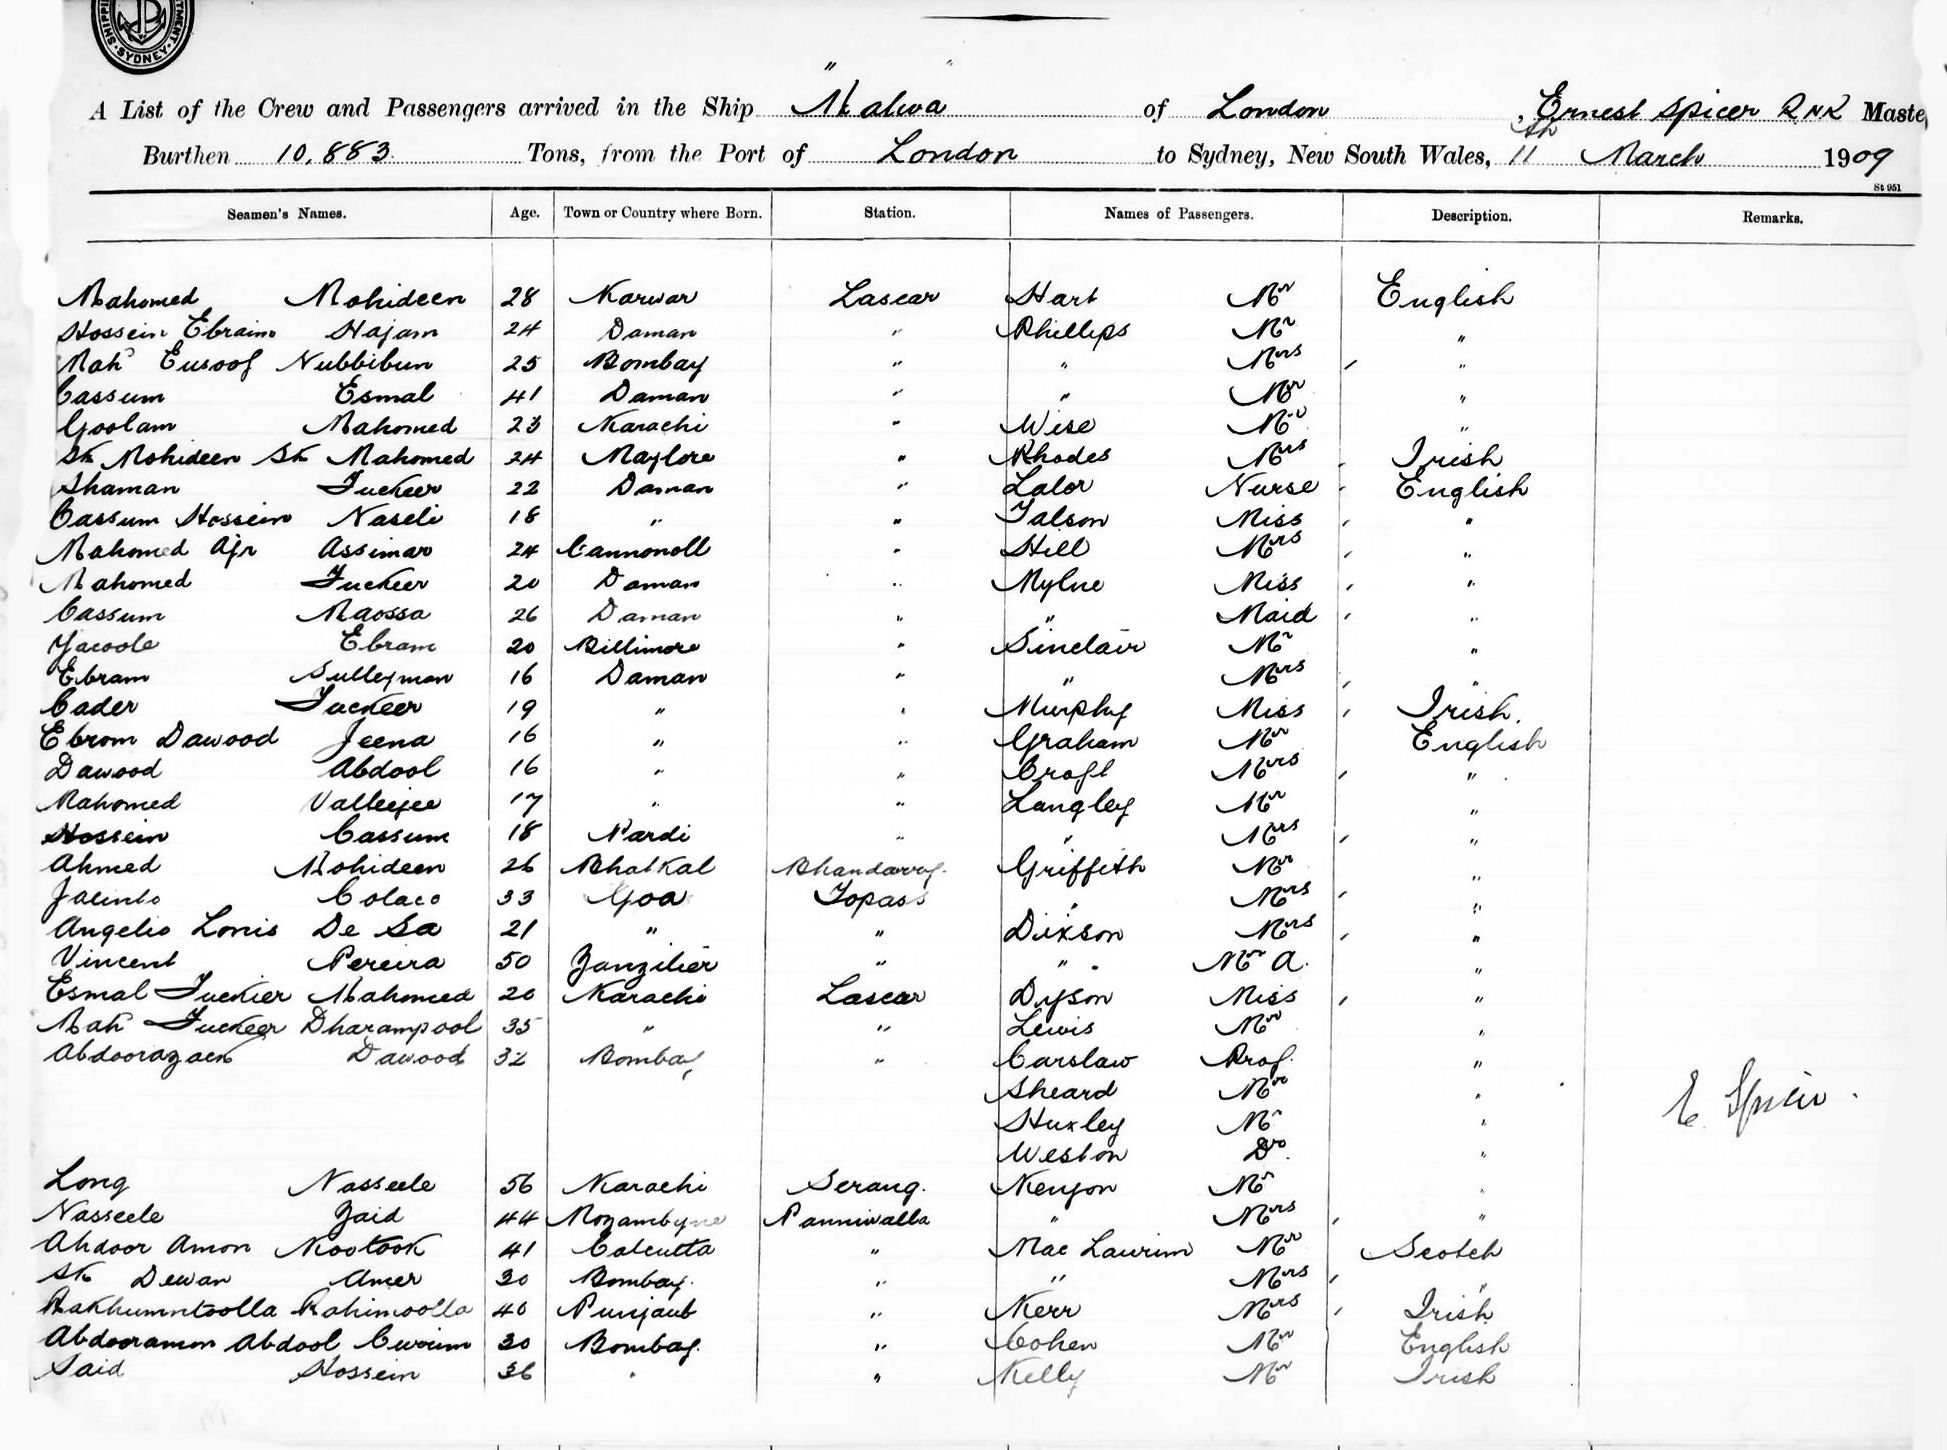 SHIPPING SYDNEY
A List of the Crew and Passengers arrived in the Ship "Malwa" of London, Ernest Spicer RNR Maste
Burthen 10,883 Tons, from the Port of London to Sydney, New South Wales, 11th March 1909
St 951
Seamen's Names. Age. Town or Country where Born. Station. Names of Passengers. Description. Remarks.
Mahomed Mohideen 28 Karwar Lascar Hart Mr English
Hossein Ebraim Hajam 24 Daman " Phillips Mr "
Mah Eusoof Nubbibun 25 Bombay " " Mrs "
Cassum Esmal 41 Daman " " Mr "
Goolam Mahomed 23 Karachi " Wise Mr "
Sk Mohideen Sk Mahomed 24 Maylore " Rhodes Mrs Irish
Shaman Fuckeer 22 Daman " Lalor Nurse English
Cassum Hossein Naseli 18 " " Talson Miss "
Mahomed Ajr Assimar 24 Cannonoll " Hill Mrs "
Mahomed Fuckeer 20 Daman " Mylne Miss "
Cassum Maossa 26 Daman " " Maid "
Yacoole Ebram 20 Billimore " Sinclair Mr "
Ebram Sulleyman 16 Daman " " Mrs "
Cader Fuckeer 19 " " Murphy Miss Irish.
Ebrom Dawood Jeena 16 " " Graham Mr English
Dawood Abdool 16 " " Croft Mrs "
Mahomed Valleejee 17 " " Langley Mr "
Hossein Cassum 18 Pardi " " Mrs "
Ahmed Mohideen 26 Bhatkal Bhandarry. Griffith Mr "
Jacinto Colaco 33 Goa Topass " Mrs "
Angelio Louis De Sa 21 " " Dixson Mrs "
Vincent Pereira 50 Zanzibier " " Mr A. "
Esmal Fuckier Mahomed 20 Karachi Lascar Dyson Miss "
Mah Fuckeer Dharampool 35 " " Lewis Mr "
Abdoorazack Dawood 32 Bombay " Carslaw Prof. "
Sheard Mr "
Huxley Mr "
E. Spicer.
Weston Dr. "
Long Nasseele 56 Karachi Serang. Kenyon Mr "
Nasseele Zaid 44 Mozambyne Panniwalla " Mrs "
Ahdoor Amon Nootook 41 Calcutta " Mac Laurim Mr Scotch
Sk Dewan Amer 30 Bombay. " " Mrs "
Rakhumntoolla Rahimoolla 40 Punjaub " Kerr Mrs Irish
Abdooramon Abdool Curim 30 Bombay. " Cohen Mr English
Said Hossein 36 " " Kelly Mr Irish